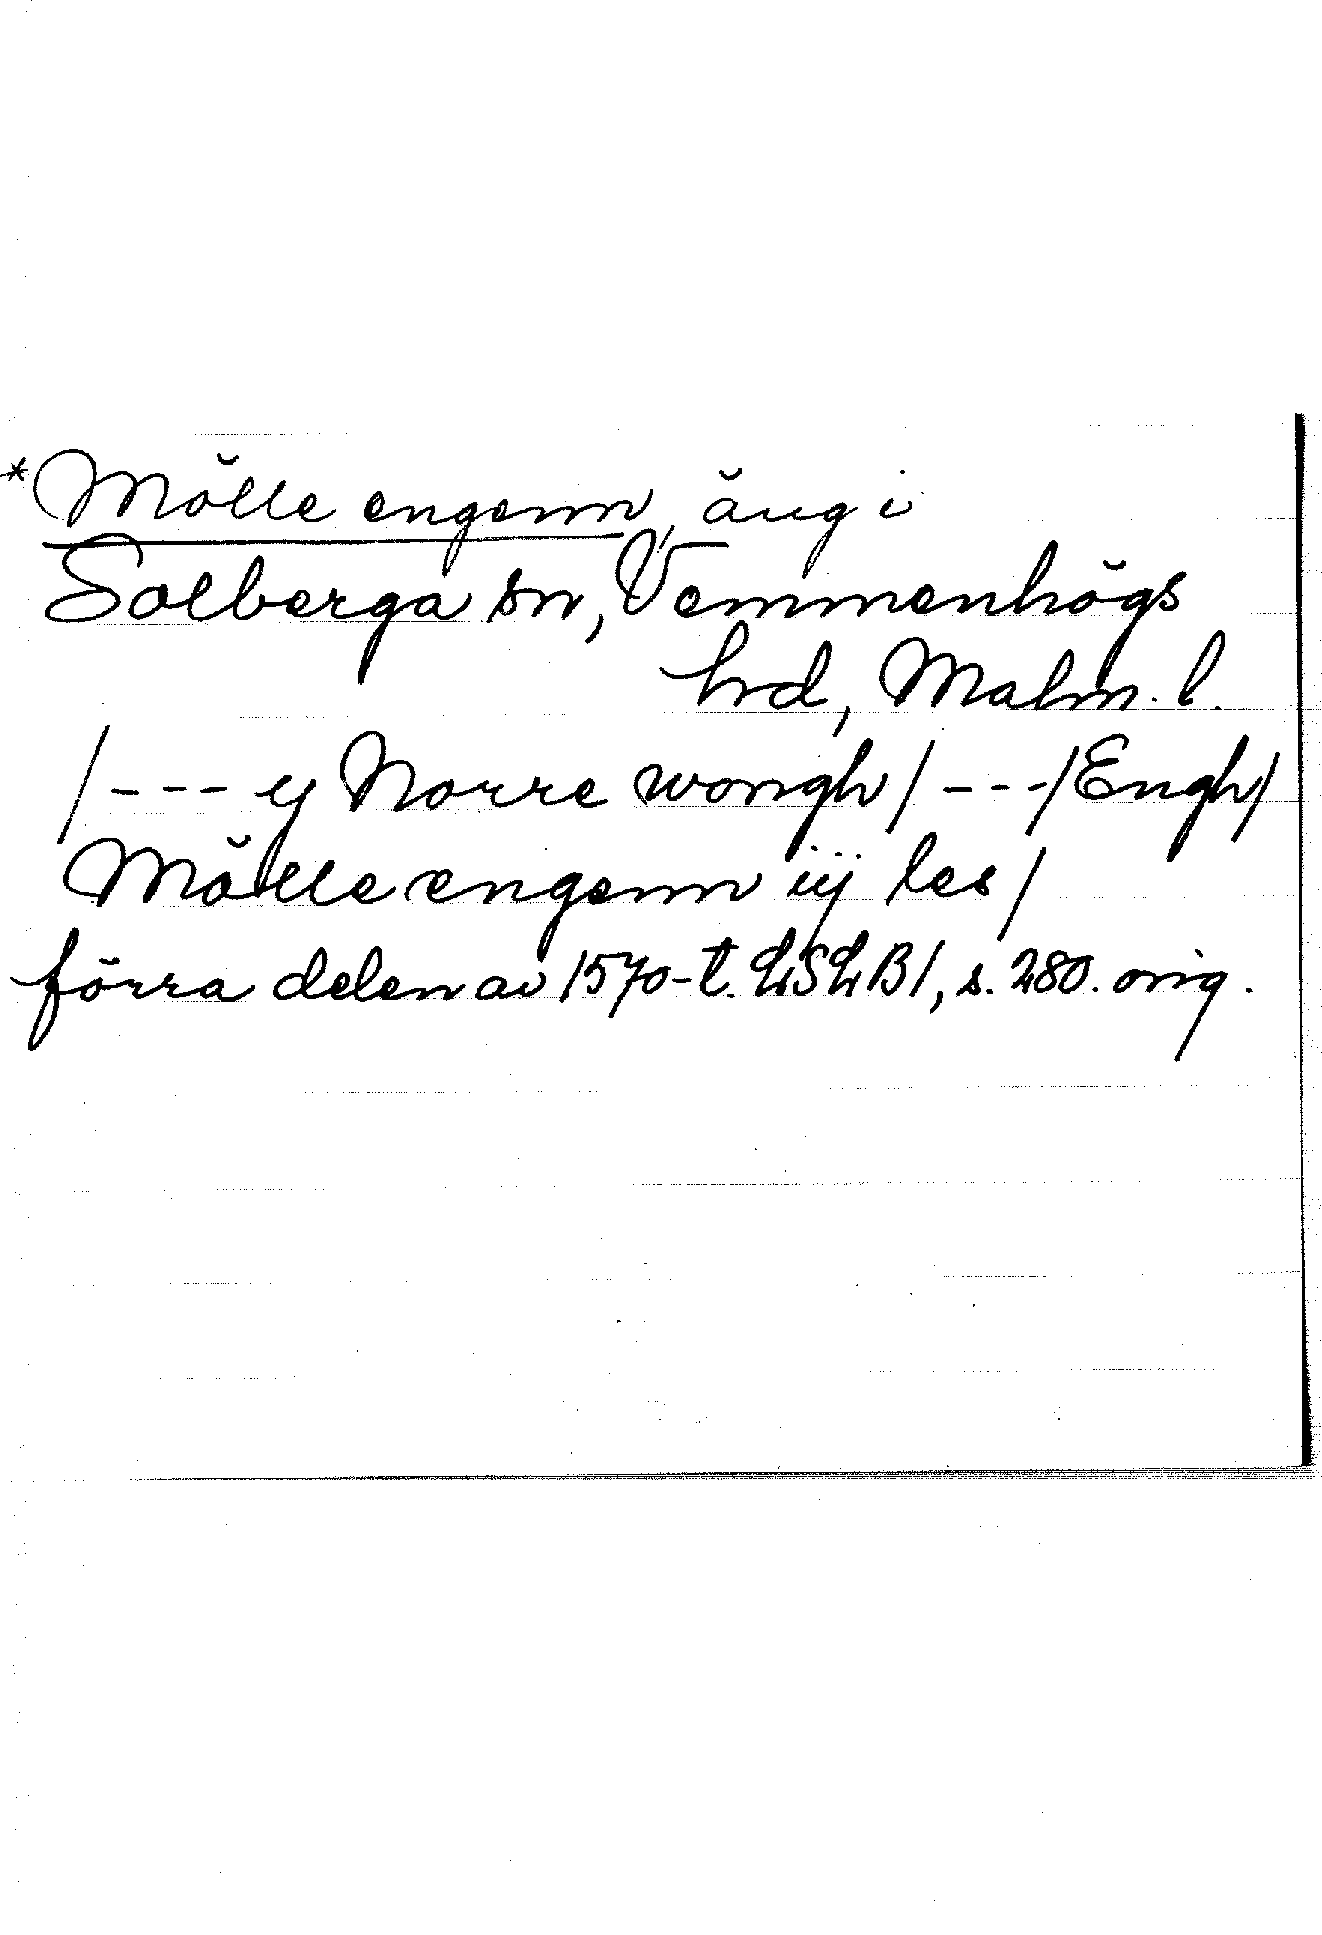 *Mölle engenn, äng i
Solberga sn, Vemmenhögs
hrd, Malm. l.
/--- y Norre wongh/ ---/Engh/
Mölle engenn iij les/
förra delen av 1570-t. LSLB1, s. 280. orig.